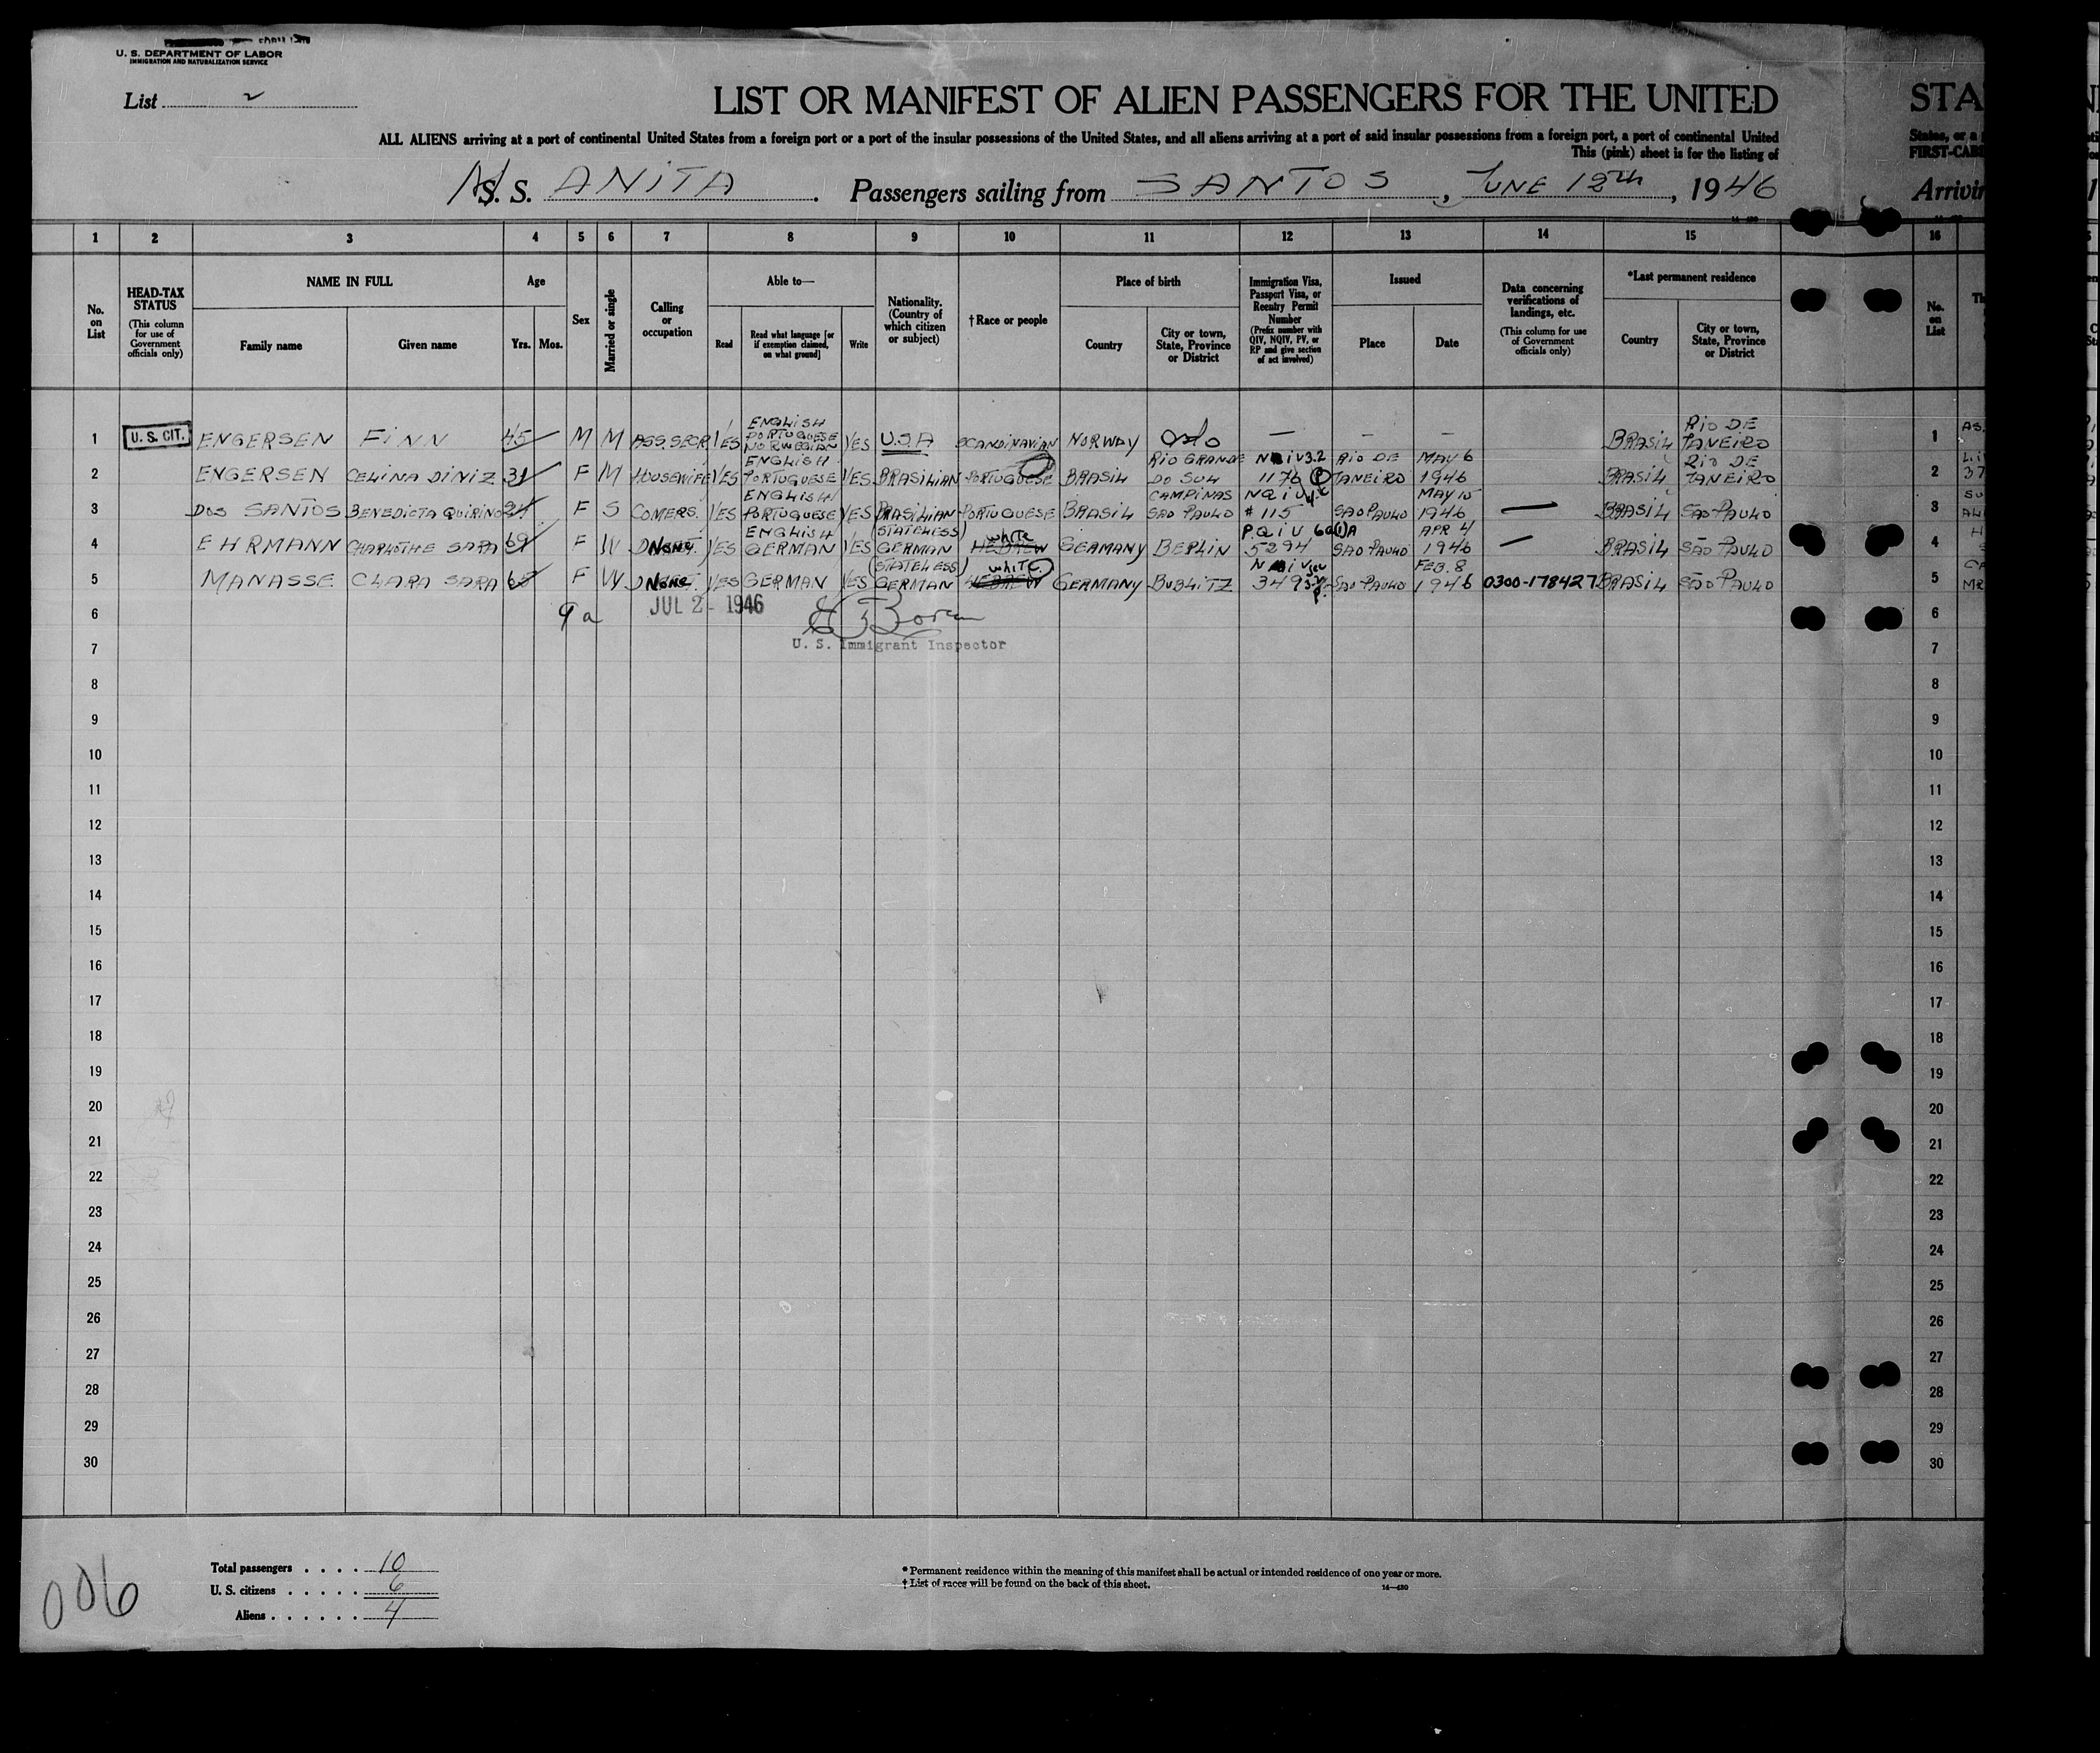 U. S. DEPARTMENT OF LABOR
IMMIGRATION AND NATURALIZATION SERVICE
List 2
LIST OR MANIFEST OF ALIEN PASSENGERS FOR THE UNITED STA
ALL ALIENS arriving at a port of continental United States from a foreign port or a port of the insular possessions of the United States, and all aliens arriving at a port of said insular possessions from a foreign port, a port of continental United States, or a
This (pink) sheet is for the listing of FIRST-CAB
S. S. ANITA. Passengers sailing from SANTOS, JUNE 12th, 1946 Arrivin
1 2 3 4 5 6 7 8 9 10 11 12 13 14 15 16
No. on List
HEAD-TAX STATUS (This column for use of Government officials only)
NAME IN FULL
Family name Given name
Age
Yrs. Mos.
Sex
Married or single
Calling or occupation
Able to—
Read
Read what language [or if exemption claimed, on what ground]
Write
Nationality. (Country of which citizen or subject)
† Race or people
Place of birth
Country
City or town, State, Province or District
Immigration Visa, Passport Visa, or Reentry Permit Number (Prefix number with QIV, NQIV, PV, or RP and give section of act involved)
Issued
Place Date
Data concerning verifications of landings, etc. (This column for use of Government officials only)
*Last permanent residence
Country
City or town, State, Province or District
No. on List
1 U. S. CIT. ENGERSEN FINN 45 M M ASS.SECR. YES ENGLISH PORTUGUESE NORWEGIAN YES U.S.A SCANDINAVIAN NORWAY Oslo — — — BRASIL RIO DE JANEIRO 1
2 ENGERSEN CELINA DINIZ 31 F M HOUSEWIFE YES ENGLISH PORTUGUESE YES BRASILIAN PORTUGUESE BRASIL RIO GRANDE DO SUL 1176 RIO DE JANEIRO MAY 6 1946 BRASIL RIO DE JANEIRO 2 37
3 DOS SANTOS BENEDICTA QUIRINO 24 F S COMERS. YES ENGLISH PORTUGUESE YES BRASILIAN PORTUGUESE BRASIL CAMPINAS SAO PAULO # 115 SAO PAULO MAY 15 1946 — BRASIL SÃO PAULO 3
4 EHRMANN CHARLOTHE SARA 69 F W None YES ENGLISH GERMAN YES (STATELESS) GERMAN white HEBREW GERMANY BERLIN 5294 SAO PAULO APR 4 1946 — BRASIL SÃO PAULO 4
5 MANASSE CLARA SARA F W None YES GERMAN YES (STATELESS) GERMAN white HEBREW GERMANY BUBLITZ 349 SAO PAULO FEB. 8 1946 0300-178427 BRASIL SÃO PAULO 5
6 JUL 2 - 1946 6
7 U. S. Immigrant Inspector 7
8 8
9 9
10 10
11 11
12 12
13 13
14 14
15 15
16 16
17 17
18 18
19 19
20 20
21 21
22 22
23 23
24 24
25 25
26 26
27 27
28 28
29 29
30 30
Total passengers . . . . 10
U. S. citizens . . . . . 6
Aliens . . . . . . 4
006
* Permanent residence within the meaning of this manifest shall be actual or intended residence of one year or more.
† List of races will be found on the back of this sheet.